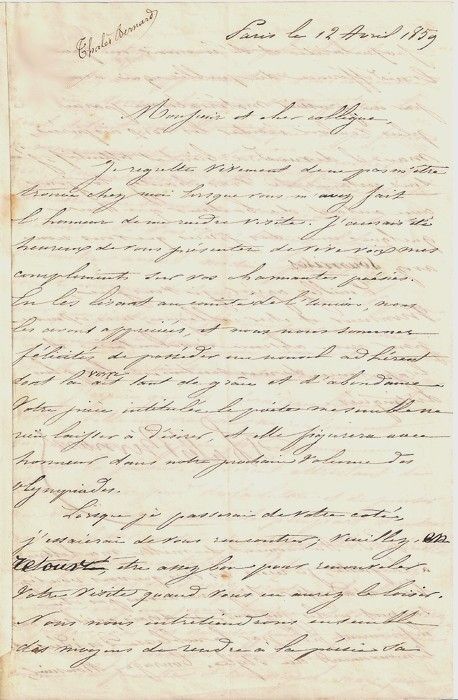 Thalès Bernard
Paris le 12 Avril 1859
Monsieur et cher collègue,
Je regrette vivement de ne pas m'être
trouvé chez moi lorsque vous m'avez fait
l'honneur de me rendre visite. J'aurais été
heureux de vous présenter de vive voix mes
compliments sur vos charmantes poésies.
En les lisant au comité de l'Union, nous
les avons appréciées, et nous nous sommes
félicités de posséder un nouvel adhérent
dont la verve ait tant de grâce et d'abondance
Votre pièce intitulée le poëte me semble ne
rien laisser à désirer, et elle figurera avec
honneur dans notre prochain volume des
Olympiades.
Lorsque je passerai de votre coté,
j'essaierai de vous rencontrer, veuillez, en
retour, être assez bon pour renouveler
votre visite quand vous en aurez le loisir.
Nous nous entretiendrons ensemble
des moyens de rendre à la poésie sa